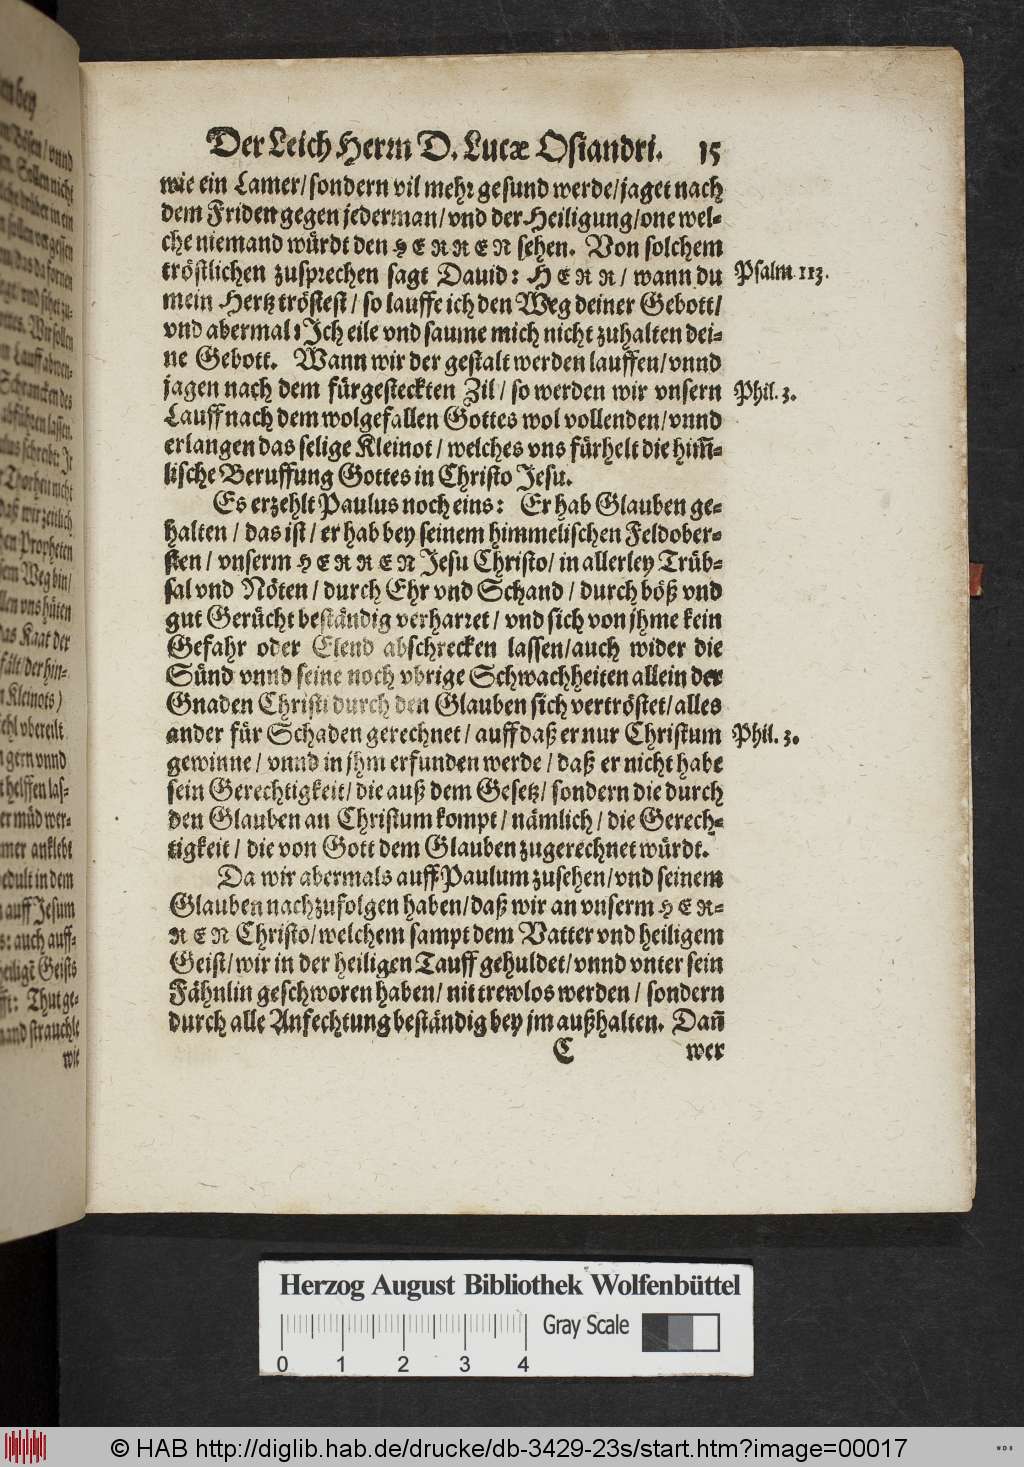 Der Leich Herrn D. Lucæ Osiandri. 15
wie ein Lamer/sondern vil mehr gesund werde/jaget nach
dem Friden gegen jederman/vnd der Heiligung/one wel-
che niemand würdt den HERREN sehen. Von solchem
tröstlichen zusprechen sagt Dauid: HERR/wann du
Psalm 113.
mein Hertz tröstest/so lauffe ich den Weg deiner Gebott/
vnd abermal: Ich eile vnd saume mich nicht zuhalten dei-
ne Gebott. Wann wir der gestalt werden lauffen/vnnd
jagen nach dem fürgesteckten Zil/so werden wir vnsern
Phil. 3.
Lauff nach dem wolgefallen Gottes wol vollenden/vnnd
erlangen das selige Kleinot/welches vns fürhelt die him̄-
lische Beruffung Gottes in Christo Jesu.
Es erzehlt Paulus noch eins: Er hab Glauben ge-
halten/das ist/er hab bey seinem himmelischen Feldober-
sten/vnserm HERREN Jesu Christo/in allerley Trüb-
sal vnd Nöten/durch Ehr vnd Schand/durch böß vnd
gut Gerücht beständig verharret/vnd sich von jhme kein
Gefahr oder Elend abschrecken lassen/auch wider die
Sünd vnnd seine noch vbrige Schwachheiten allein der
Gnaden Christi durch den Glauben sich vertröstet/alles
ander für Schaden gerechnet/auff daß er nur Christum
Phil. 3.
gewinne/vnnd in jhm erfunden werde/daß er nicht habe
sein Gerechtigkeit/die auß dem Gesetz/sondern die durch
den Glauben an Christum kompt/nämlich/die Gerech-
tigkeit/die von Gott dem Glauben zugerechnet würdt.
Da wir abermals auff Paulum zusehen/vnd seinem
Glauben nachzufolgen haben/daß wir an vnserm HER-
REN Christo/welchem sampt dem Vatter vnd heiligem
Geist/wir in der heiligen Tauff gehuldet/vnnd vnter sein
Fähnlin geschworen haben/nit trewlos werden/sondern
durch alle Anfechtung beständig bey jm außhalten. Dañ
C wer
Herzog August Bibliothek Wolfenbüttel
Gray Scale
0 1 2 3 4
© HAB http://diglib.hab.de/drucke/db-3429-23s/start.htm?image=00017